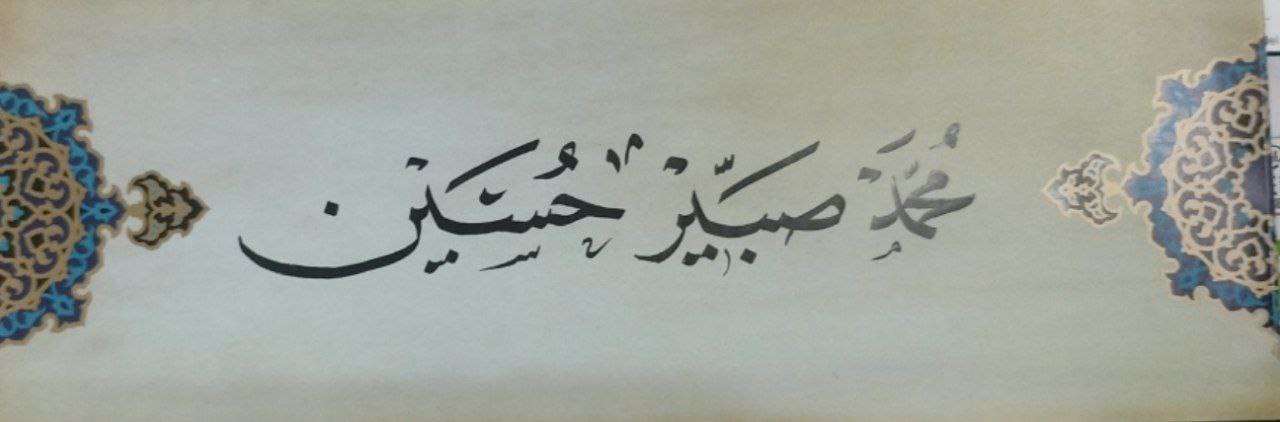 مُحَمَّدْ صَبِّيرْ حُسَيْن